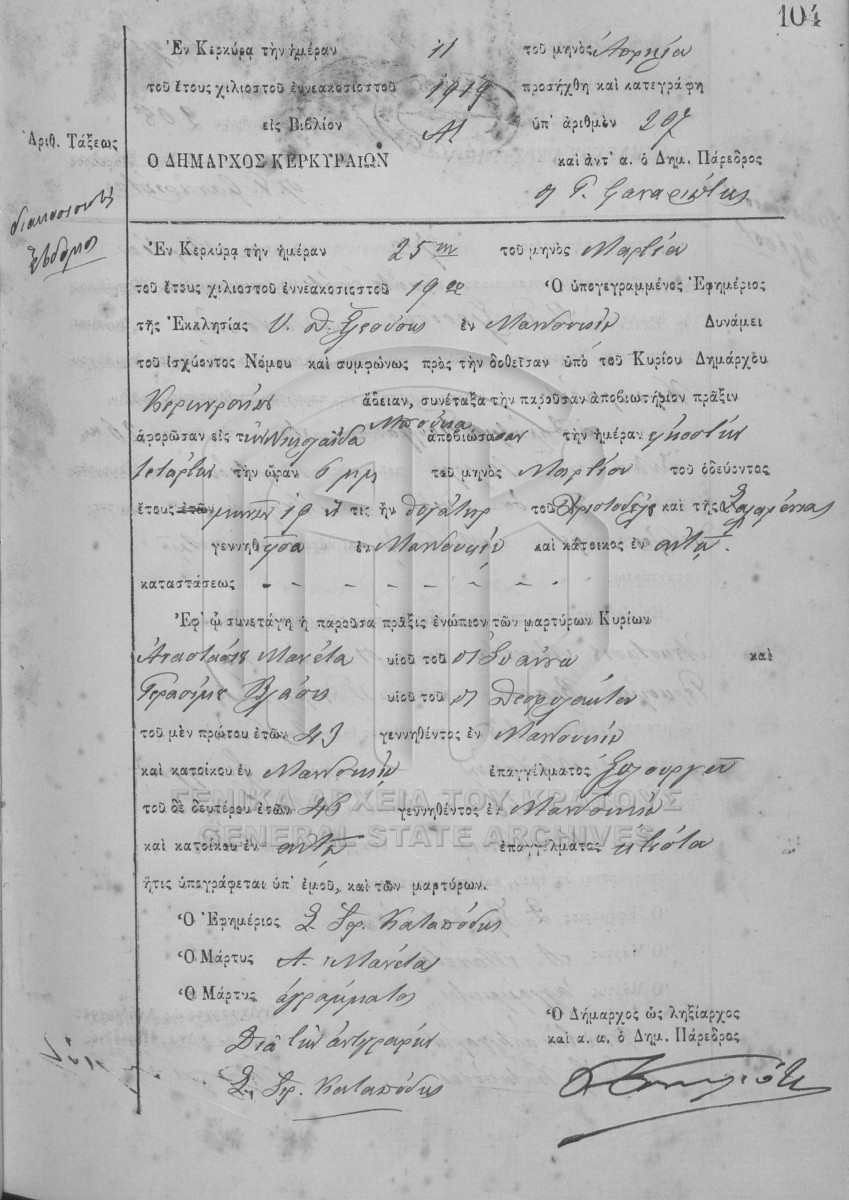 104
Ἐν Κερκύρᾳ τὴν ἡμέραν 11 τοῦ μηνὸς Ἀπριλίου
τοῦ ἔτους χιλιοστοῦ ἐννεακοσιοστοῦ 1919 προσήχθη καὶ κατεγράφη
εἰς Βιβλίον Α! ὑπ' ἀριθμὸν 207
Ἀριθ. Τάξεως
Ο ΔΗΜΑΡΧΟΣ ΚΕΡΚΥΡΑΙΩΝ καὶ ἀντ' α. ὁ Δημ. Πάρεδρος
διακοσιοστὸς
ἕβδομος
Ἐν Κερκύρᾳ τὴν ἡμέραν 25ην τοῦ μηνὸς Μαρτίου
τοῦ ἔτους χιλιοστοῦ ἐννεακοσιοστοῦ 19ου Ὁ ὑπογεγραμμένος Ἐφημέριος
τῆς Ἐκκλησίας Υ. Θ. Ἐλεούσης ἐν Μανδουκίῳ Δυνάμει
τοῦ ἰσχύοντος Νόμου καὶ συμφώνως πρὸς τὴν δοθεῖσαν ὑπὸ τοῦ Κυρίου Δημάρχου
Κερκυραίων ἄδειαν, συνέταξα τὴν παροῦσαν ἀποβιωτήριον πρᾶξιν
ἀφορῶσαν εἰς τὴν Νικολαΐδα Μπούκα ἀποβιώσασαν τὴν ἡμέραν εἰκοστὴν
τετάρτην τὴν ὥραν 6 μμ τοῦ μηνὸς Μαρτίου τοῦ ὁδεύοντος
ἔτους ἐτῶν μηνῶν 19 τις ἦν θυγάτηρ τοῦ Ἀριστοδήμου καὶ τῆς
γεννηθεῖσα ἐν Μανδουκίῳ καὶ κάτοικος ἐν αὐτῷ.
καταστάσεως - - - - - - - -
Ἐφ' ᾧ συνετάγη ἡ παροῦσα πρᾶξις ἐνώπιον τῶν μαρτύρων Κυρίων
Ἀναστάσιου Μανέτα υἱοῦ τοῦ Ἰωάννου καὶ
Γερασίμου Βλάση υἱοῦ τοῦ Θεοφυλάκτου
τοῦ μὲν πρώτου ἐτῶν 43 γεννηθέντος ἐν Μανδουκίῳ
καὶ κατοίκου ἐν Μανδουκίῳ ἐπαγγέλματος ξυλουργοῦ
ΓΕΝΙΚΑ ΑΡΧΕΙΑ ΤΟΥ ΚΡΑΤΟΥΣ
τοῦ δὲ δευτέρου ἐτῶν 46 γεννηθέντος ἐν Μανδουκίῳ
GENERAL STATE ARCHIVES
καὶ κατοίκου ἐν αὐτῷ ἐπαγγέλματος κτίστα
ἥτις ὑπογράφεται ὑπ' ἐμοῦ, καὶ τῶν μαρτύρων.
Ὁ Ἐφημέριος Σ. Ἱερ. Καταπόδης
Ὁ Μάρτυς Α. Μανέτας
Ὁ Μάρτυς ἀγράμματος
Ὁ Δήμαρχος ὡς ληξίαρχος
καὶ α. α. ὁ Δημ. Πάρεδρος
Διὰ τὴν ἀντιγραφὴν
Σ. Ἱερ. Καταπόδης